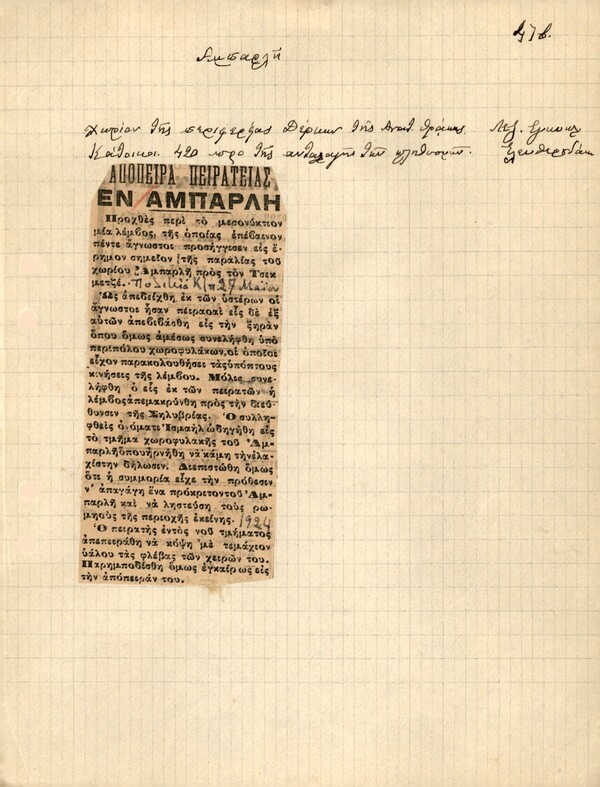 Αμπαρλή
Χωρίον της περιφερείας Δέρκων της Ανατ. Θράκης. Λεξ. Εγκυκλ.
Κάτοικοι 420 προ της ανταλαγής των πληθυσμών. Ελευθερουδάκη
ΑΠΟΠΕΙΡΑ ΠΕΙΡΑΤΕΙΑΣ
ΕΝ ΑΜΠΑΡΛΗ
Προχθὲς περὶ τὸ μεσονύκτιον
μία λέμβος, τῆς ὁποίας ἐπέβαινον
πέντε ἄγνωστοι προσήγγισεν εἰς ἔ-
ρημον σημεῖον τῆς παραλίας τοῦ
χωρίου Ἀμπαρλῆ πρὸς τὸν Τσεκ
μετζέ. Πολιτικά Κ/π 27 Μαΐου
Ὡς ἀπεδείχθη ἐκ τῶν ὑστέρων οἱ
ἄγνωστοι ἦσαν πειραταὶ εἷς δὲ ἐξ
αὐτῶν ἀπεβιβάσθη εἰς τὴν ξηρὰν
ὅπου ὅμως ἀμέσως συνελήφθη ὑπὸ
περιπόλου χωροφυλάκων, οἱ ὁποῖοι
εἶχον παρακολουθήσει τὰς ὑπόπτους
κινήσεις τῆς λέμβου. Μόλις συνε-
λήφθη ὁ εἷς ἐκ τῶν πειρατῶν ἡ
λέμβος ἀπεμακρύνθη πρὸς τὴν διεύ-
θυνσιν τῆς Σηλυβρίας. Ὁ συλλη-
φθεὶς ὀνόματι Ἰσμαὴλ ὡδηγήθη εἰς
τὸ τμῆμα χωροφυλακῆς τοῦ Ἀμ-
παρλῆ ὅπου ἠρνήθη νὰ κάμη τὴν ἐλα-
χίστην δήλωσιν. Διεπιστώθη ὅμως
ὅτι ἡ συμμορία εἶχε τὴν πρόθεσιν
ν' ἀπαγάγη ἕνα πρόκριτον τοῦ Ἀμ-
παρλῆ καὶ νὰ ληστεύση τοὺς ρω-
μηοὺς τῆς περιοχῆς ἐκείνης. 1924
Ὁ πειρατὴς ἐντὸς τοῦ τμήματος
ἀπεπειράθη νὰ κόψη μὲ τεμάχιον
ὑάλου τὰς φλέβας τῶν χειρῶν του.
Παρημποδίσθη ὅμως ἐγκαίρως εἰς
τὴν ἀπόπειράν του.